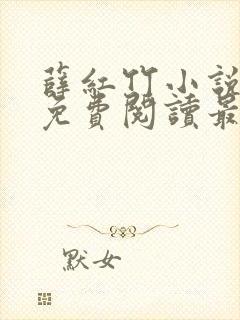 薛紅竹小說
免費閱讀最
默女